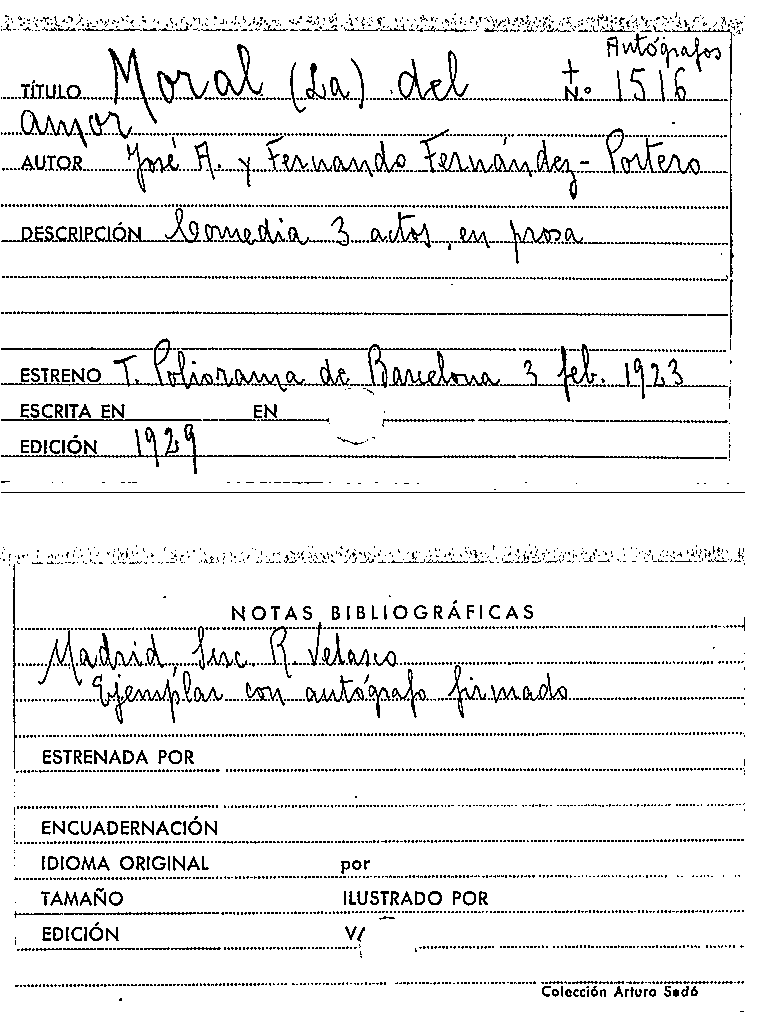 Autógrafos
TÍTULO Moral (La) del + N.º 1516
amor
AUTOR José A. y Fernando Fernández-Portero
DESCRIPCIÓN Comedia 3 actos, en prosa
ESTRENO T. Poliorama de Barcelona 3 feb. 1923
ESCRITA EN EN
EDICIÓN 1929
NOTAS BIBLIOGRÁFICAS
Madrid, Suc. R. Velasco
Ejemplar con autógrafo firmado
ESTRENADA POR
ENCUADERNACIÓN
IDIOMA ORIGINAL por
TAMAÑO ILUSTRADO POR
EDICIÓN
Colección Arturo Sedó